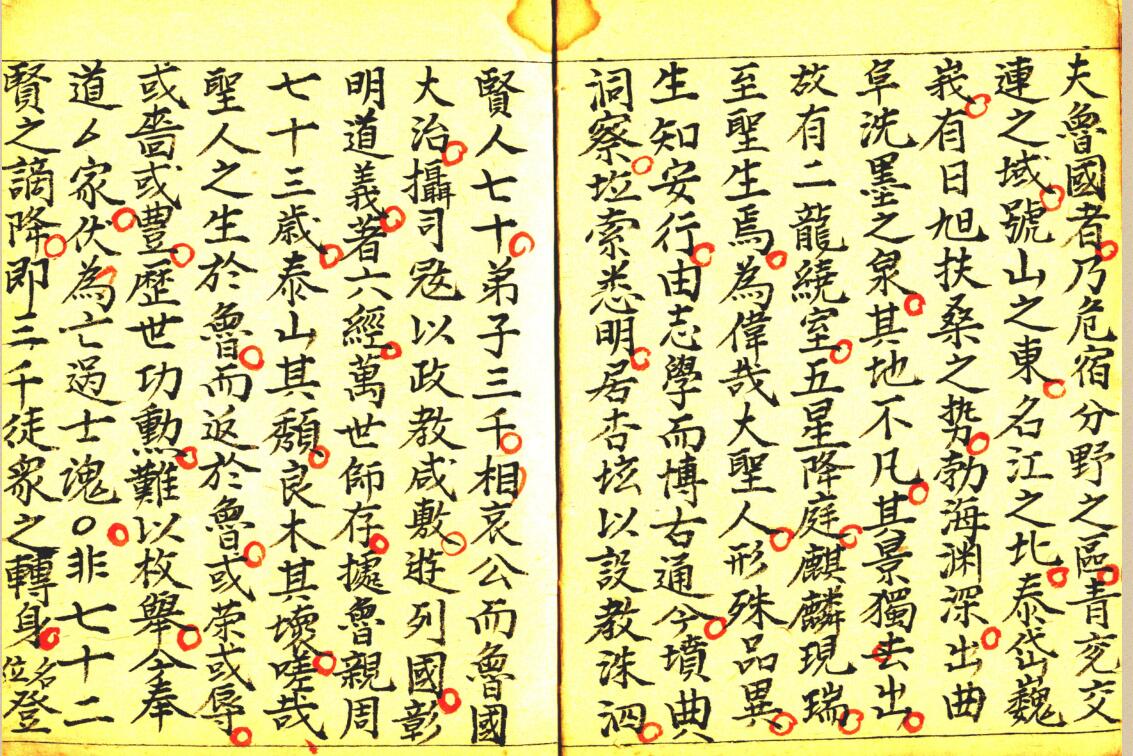 夫魯國者乃危宿分野之區青兖交
連之域號山之東名江之北泰岱巍
峩有日旭扶桑之势勃海渊深出曲
阜洗墨之泉其地不凡其景獨去出
故有二龍繞室五星降庭麒麟現瑞
至聖生焉為偉哉大聖人形殊品異
生知安行由志學而博古通今墳典
洞察坵索悉明居杏坛以設教洙泗
賢人七十弟子三千相哀公而魯國
大治攝司宼以政教咸敷遊列國彰
明道義著六經萬世師存㩀魯親周
七十三歳泰山其頹良木其壞嗟哉
聖人之生於魯而返於魯或荣或辱
或啬或豊歷世功勲難以枚舉今奉
道厶家伏為亡過士魂〇非七十二
賢之謫降即三千徒衆之轉身名登位